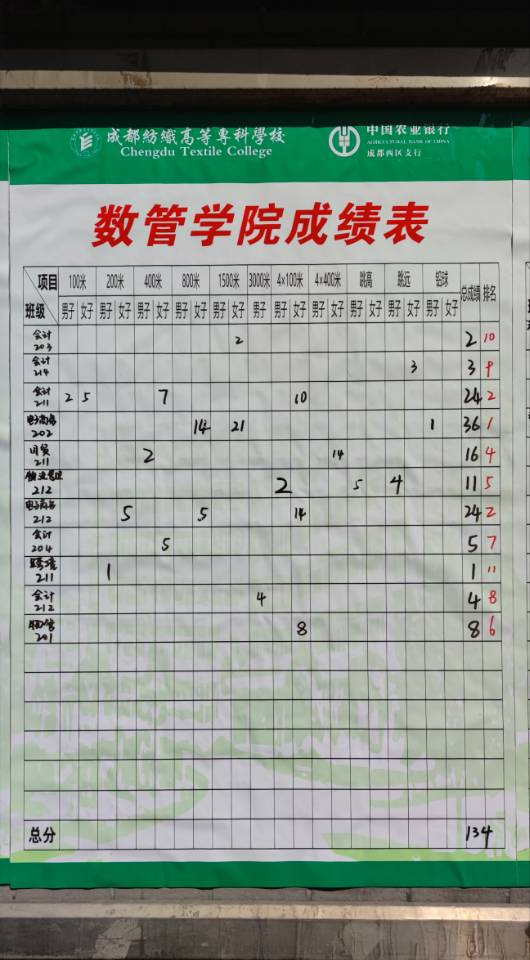 成都纺织高等专科学校
Chengdu Textile College
中国农业银行
AGRICULTURAL BANK OF CHINA
成都西区支行
数管学院成绩表
项目 100米 200米 400米 800米 1500米 3000米 4×100米 4×400米 跳高 跳远 铅球 总成绩 排名
班级 男子 女子 男子 女子 男子 女子 男子 女子 男子 女子 男子 男子 女子 男子 女子 男子 女子 男子 女子 男子 女子
会计 203 2 2 10
会计 214 3 3 9
会计 211 2 5 7 10 24 2
电子商务 202 14 21 1 36 1
211 2 14 16 4
物业管理 212 2 5 4 11 5
电子商务 212 5 5 14 24 2
会计 204 5 5 7
211 1 1 11
会计 212 4 4 8
物管 201 8 8 6
总分 134